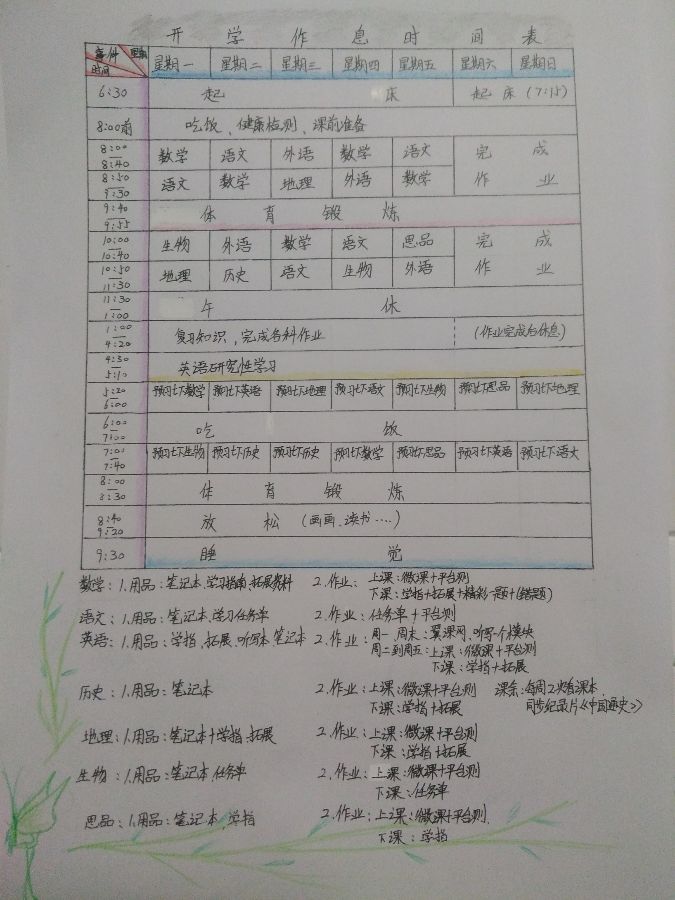 开 学 作 息 时 间 表
事件 星期 时间 星期一 星期二 星期三 星期四 星期五 星期六 星期日
6:30 起 床 起床(7:15)
8:00前 吃饭、健康检测、课前准备
8:00-8:40 数学 语文 外语 数学 语文 完成
8:50-9:30 语文 数学 地理 外语 数学 作业
9:40-9:55 体 育 锻 炼
10:00-10:40 生物 外语 数学 语文 思品 完成
10:50-11:30 地理 历史 语文 生物 外语 作业
11:30-1:00 午 休
1:00-4:20 复习知识,完成各科作业 (作业完成后休息)
4:30-5:10 英语研究性学习
5:20-6:00 预习七下数学 预习七下英语 预习七下地理 预习七下语文 预习七下生物 预习七下思品 预习七下地理
6:00-7:00 吃 饭
7:01-7:40 预习七下生物 预习七下历史 预习七下历史 预习七下数学 预习七下思品 预习七下英语 预习七下语文
8:00-8:30 体 育 锻 炼
8:40-9:20 放 松 (画画、读书····)
9:30 睡 觉
数学:1.用品:笔记本,学习指南,拓展资料 2.作业:上课:微课+平台测
下课:学指+拓展+精彩一题+(错题)
语文:1.用品:笔记本,学习任务单 2.作业:任务单+平台测
英语:1.用品:学指、拓展、听写本 笔记本 2.作业:周一、周末:翼课网、听写一个模块
周二到周五:上课:微课+平台测
下课:学指+拓展
历史:1.用品:笔记本 2.作业:上课:微课+平台测 课余:每周2次看课本,
下课:学指+拓展 同步纪录片《中国通史》
地理:1.用品:笔记本+学指、拓展 2.作业:上课:微课+平台测
下课:学指+拓展
生物:1.用品:笔记本,任务单 2.作业:上课:微课+平台测
下课:任务单
思品:1.用品:笔记本、学指 2.作业:上课:微课+平台测
下课:学指